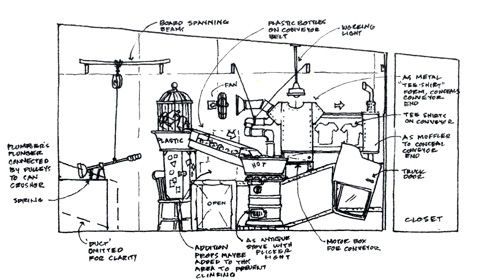 BOARD SPANNING
BEAMS
PLASTIC BOTTLES
ON CONVEYOR
BELT
WORKING
LIGHT
FAN
AS METAL
"TEE-SHIRT"
FORM, CONCEALS
CONVEYOR
END
TEE SHIRTS
ON CONVEYOR
AS MUFFLER
TO CONCEAL
CONVEYOR
END
TRUCK
DOOR
PLUMBER'S
PLUMBER
CONNECTED
BY PULLEYS
TO CAN
CRUSHOR
SPRING
PLASTIC
HOT
OPEN
CLOSET
"DUCT"
OMITTED
FOR CLARITY
ADDITION
PROPS MAY BE
ADDED TO THIS
AREA TO PREVENT
CLIMBING
AS ANTIQUE
STOVE WITH
FLICKER
LIGHT
MOTOR BOX
FOR CONVEYOR